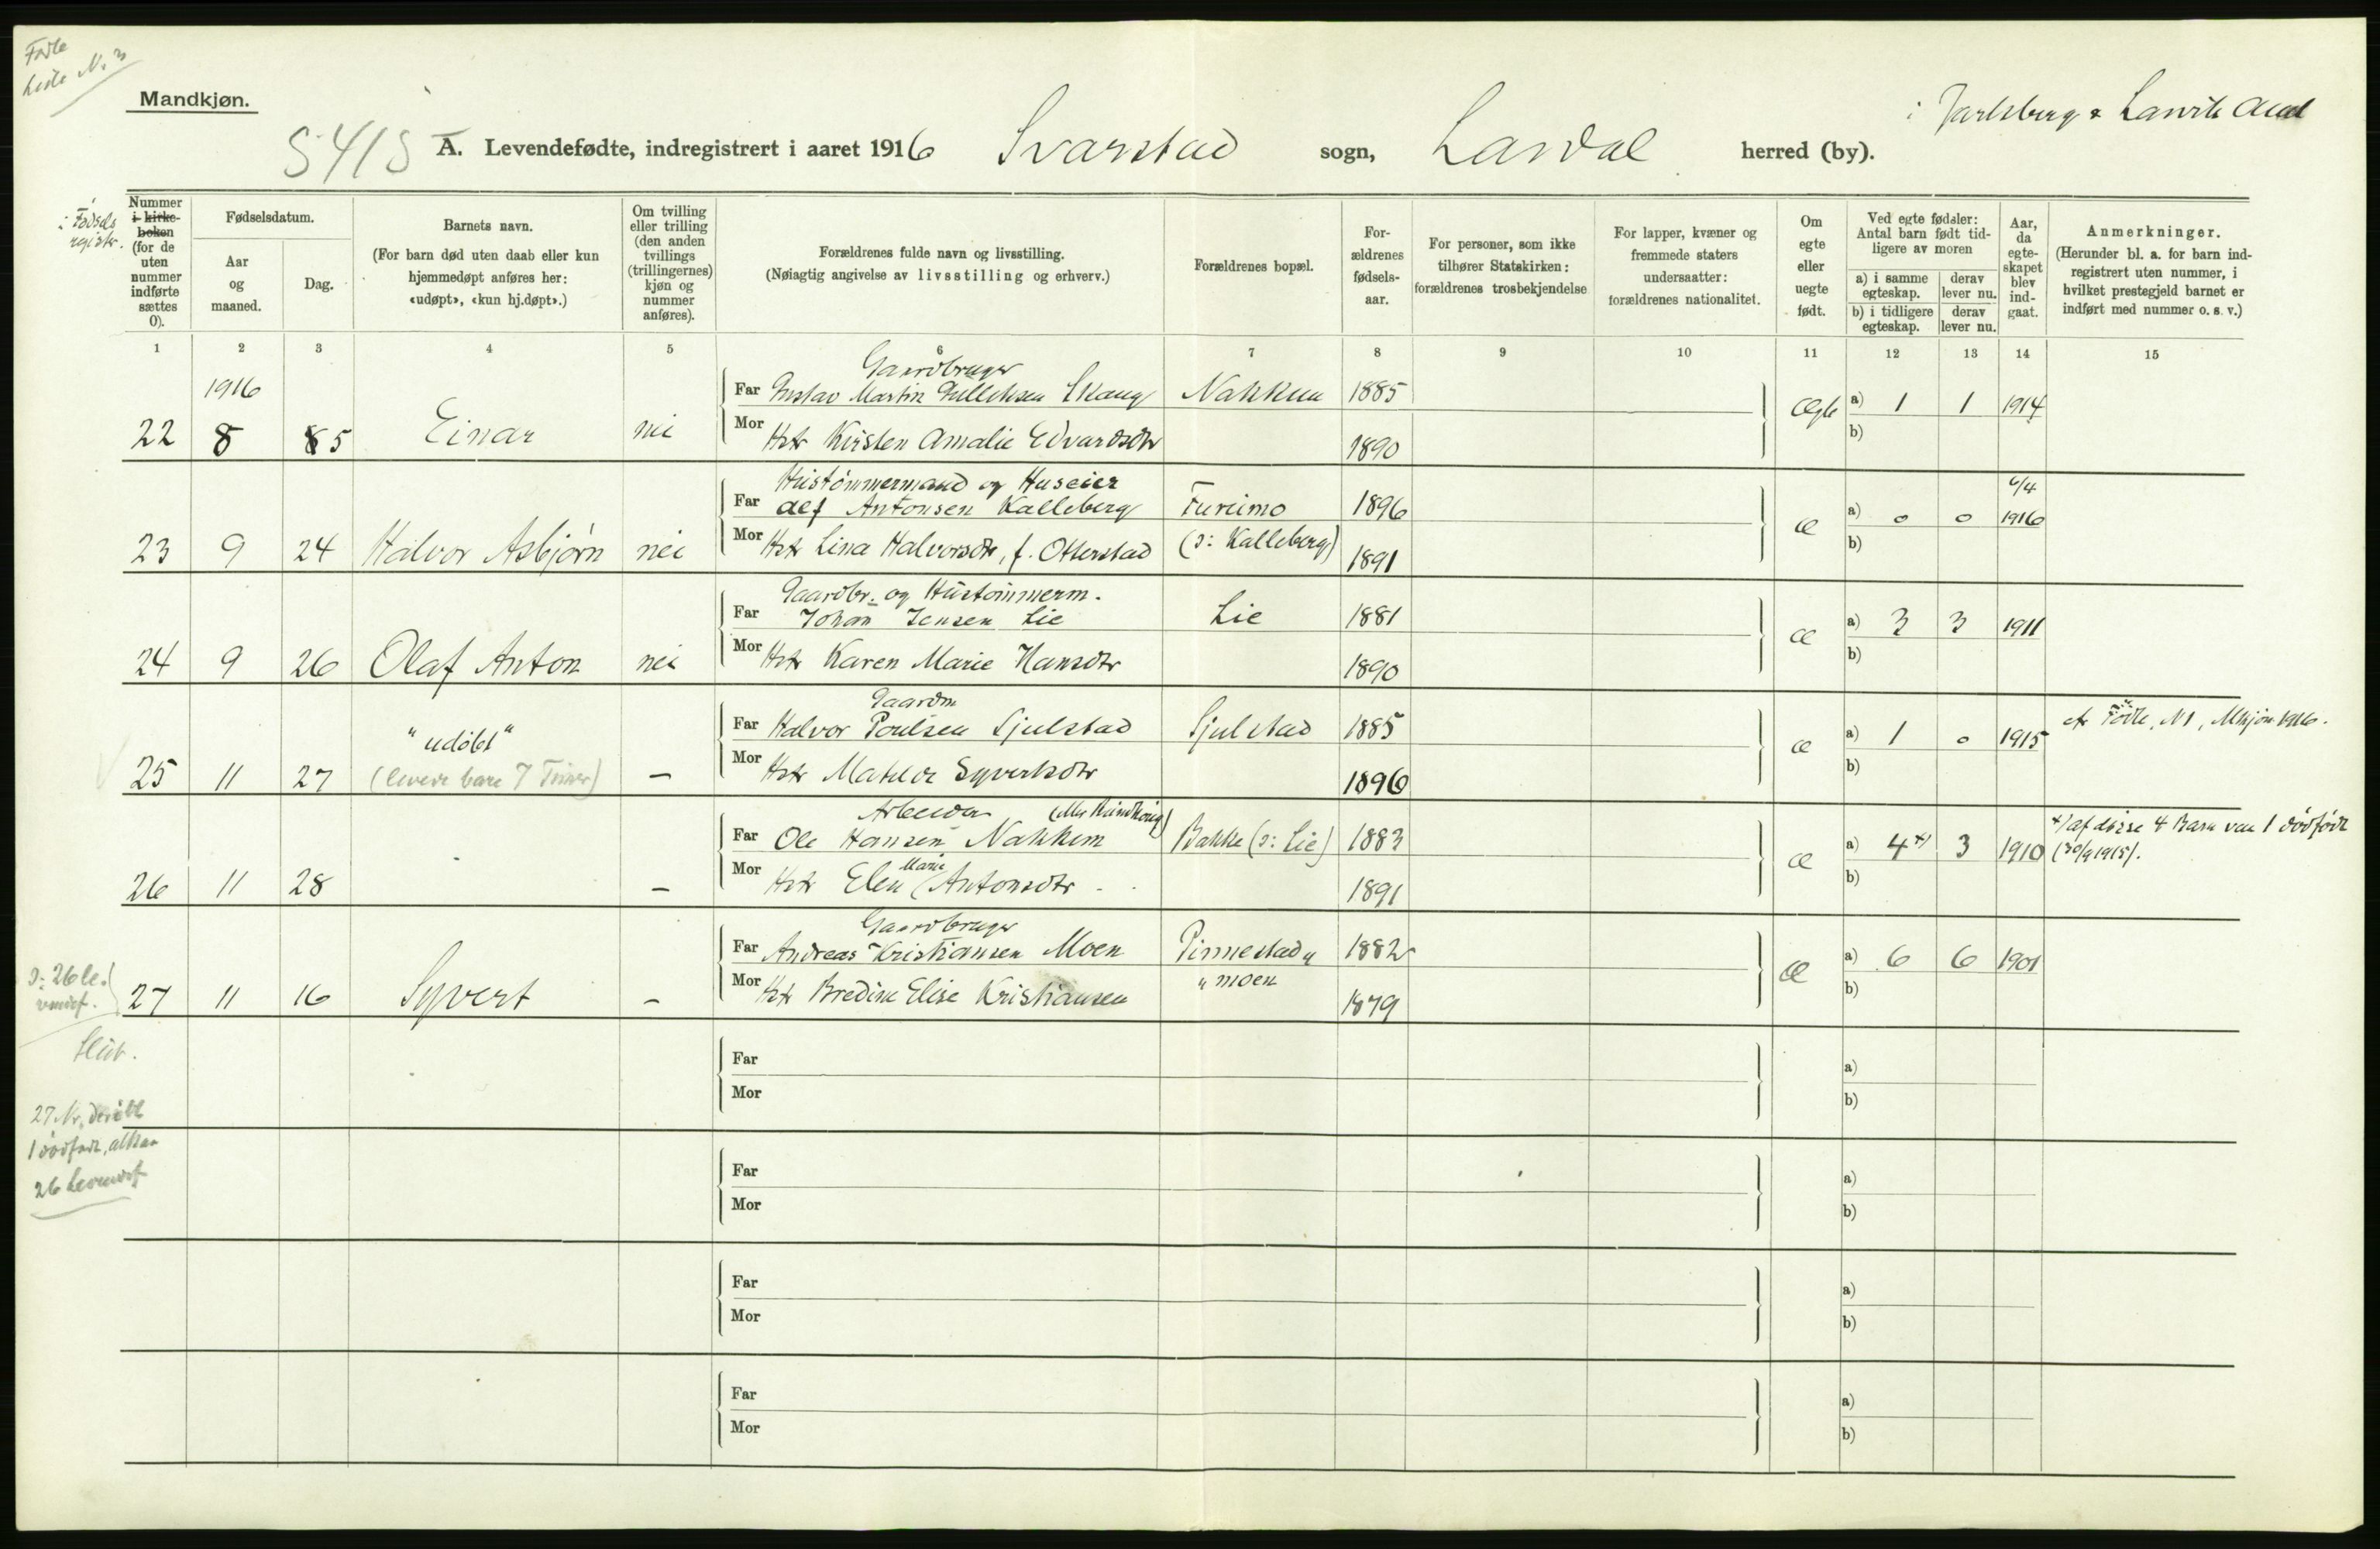 Fødte
Liste N. 3
Mandkjøn.
i Jarlsberg & Larvik Amt
5415 A. Levendefødte, indregistrert i aaret 1916 Svarstad sogn, Lardal herred (by).
i Fødsels
registr.
Nummer
i kirke-
boken
(for de
uten
nummer
indførte
sættes
0).
Fødselsdatum.
Aar
og
maaned.
Dag.
Barnets navn.
(For barn død uten daab eller kun
hjemmedøpt anføres her:
«udøpt», «kun hj.døpt».)
Om tvilling
eller trilling
(den anden
tvillings
(trillingernes)
kjøn og
nummer
anføres).
Forældrenes fulde navn og livsstilling.
(Nøiagtig angivelse av livsstilling og erhverv.)
Forældrenes bopæl.
For-
ældrenes
fødsels-
aar.
For personer, som ikke
tilhører Statskirken:
forældrenes trosbekjendelse
For lapper, kvæner og
fremmede staters
undersaatter:
forældrenes nationalitet.
Om
egte
eller
uegte
født.
Ved egte fødsler:
Antal barn født tid-
ligere av moren
a) i samme
egteskap.
derav
lever nu.
b) i tidligere
egteskap.
derav
lever nu.
Aar,
da
egte-
skapet
blev
ind-
gaat.
Anmerkninger.
(Herunder bl. a. for barn ind-
registrert uten nummer, i
hvilket prestegjeld barnet er
indført med nummer o. s. v.)
1 2 3 4 5 6 7 8 9 10 11 12 13 14 15
1916
Gaardbruger
Far Gustav Martin Gulliksen Skaug Nakkim 1885 Ægte a) 1 1 1914
22 8 5 Einar nei
Mor Hstr Kirsten Amalie Edvardsdtr 1890 b)
Hustømmermand og Huseier
Far Alf Antonsen Kalleberg Fureimo 1896 æ a) 0 0 6/4 1916
23 9 24 Halvor Asbjørn nei
Mor Hstr Lina Halvorsdtr, f. Otterstad (ɔ: Kalleberg) 1891 b)
Gaardbr. og Hustømmerm.
Far Johan Jensen Lie Lie 1881 æ a) 3 3 1911
24 9 26 Olaf Anton nei
Mor Hstr Karen Marie Hansdtr 1890 b)
Gaardm
Far Halvor Poulsen Sjulstad Sjulstad 1885 æ a) 1 0 1915 Fødte, N 1, Mkjøn 1916.
"udøbt"
25 11 27 (levede bare 7 Timer) —
Mor Hstr Matilde Syvertsdtr 1896 b)
Arbeider
Far Ole Hansen Nakkim Bakke (ɔ: Lie) 1883 æ a) 4 +) 3 1910 +) af disse 4 Barn var 1 dødfødt
(30/9 1915).
26 11 28 —
Mor Hstr Elen Marie Antonsdtr 1891 b)
Gaardbruger
Far Andreas Kristiansen Moen Pinnestad 1882 æ a) 6 6 1901
ɔ: 26 le-
vendef.
27 11 16 Syvert —
Mor Hstr Bredine Elise Kristiansen " moen 1879 b)
Slut.
Far a)
Mor b)
27 Nr, deraf
1 dødfødt, altsaa
26 Levendef
Far a)
Mor b)
Far a)
Mor b)
Far a)
Mor b)